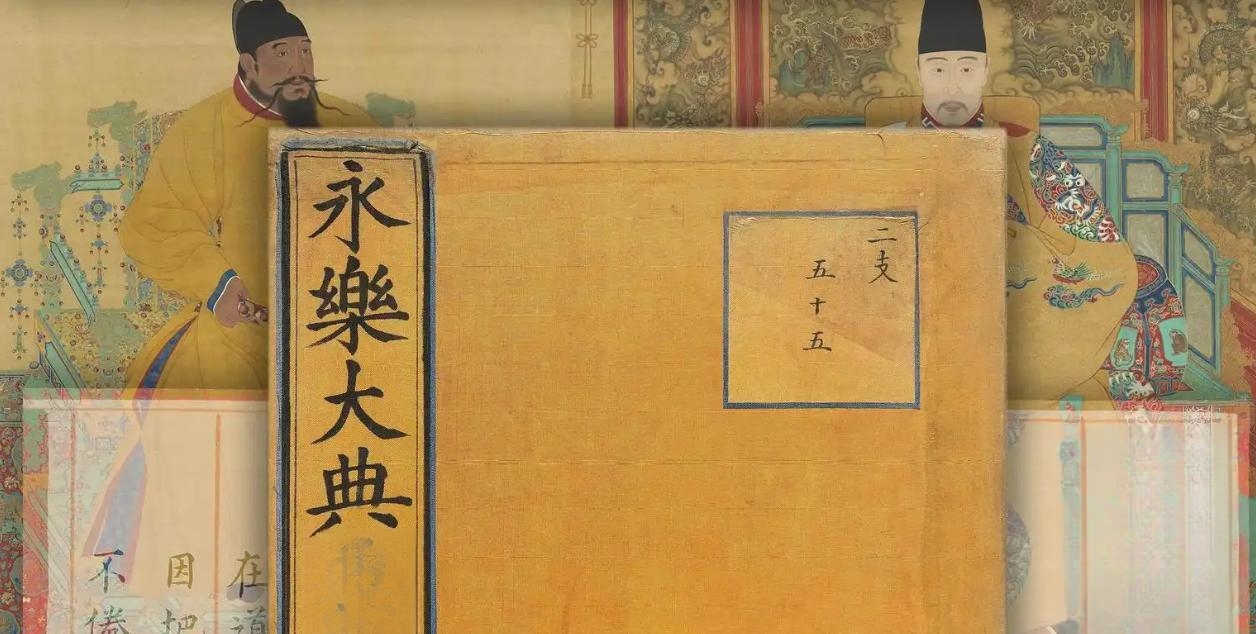 永樂大典
二支
五十五
在道
因把
不倦